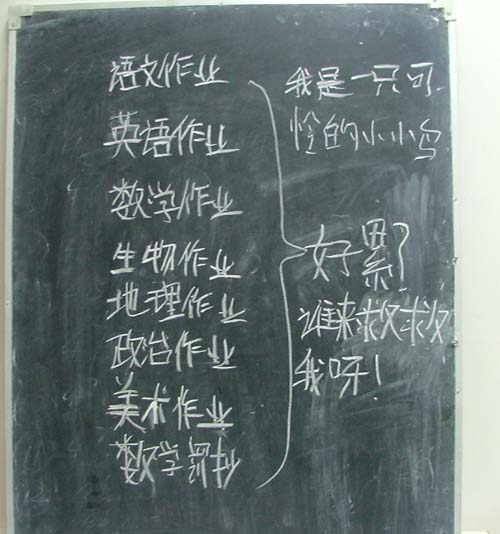 语文作业
英语作业
数学作业
生物作业
地理作业
政治作业
美术作业
数学罚抄
我是一只可
怜的小小鸟
好累?
谁来救救
我呀!